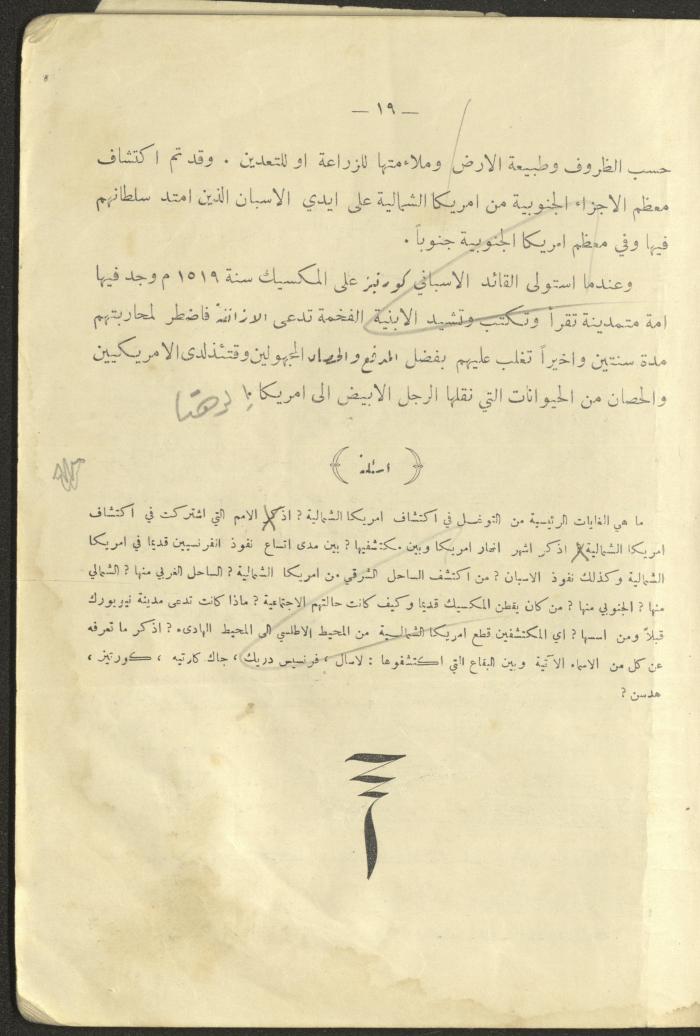 — ١٩ —
حسب الظروف وطبيعة الارض وملاءمتها للزراعة او للتعدين . وقد تم اكتشاف
معظم الاجزاء الجنوبية من امريكا الشمالية على ايدي الاسبان الذين امتد سلطانهم
فيها وفي معظم امريكا الجنوبية جنوباً .
وعندما استولى القائد الاسباني كورتيز على المكسيك سنة ١٥١٩ م وجد فيها
امة متمدينة تقرأ وتكتب وتشيد الابنية الفخمة تدعى الازاتقة فاضطر لمحاربتهم
مدة سنتين واخيراً تغلب عليهم بفضل المدفع والحصان المجهولين وقتئذ لدى الامريكيين
والحصان من الحيوانات التي نقلها الرجل الابيض الى امريكا . لهنا
( اسئلة )
ما هي الغايات الرئيسية من التوغل في اكتشاف امريكا الشمالية ? اذكر الامم التي اشتركت في اكتشاف
امريكا الشمالية ? اذكر اشهر انهار امريكا وبين مكتشفيها ? بين مدى اتساع نفوذ الفرنسيين قديمًا في امريكا
الشمالية وكذلك نفوذ الاسبان ? من اكتشف الساحل الشرقي من امريكا الشمالية ? الساحل الغربي منها ? الشمالي
منها ? الجنوبي منها ? من كان يقطن المكسيك قديمًا وكيف كانت حالتهم الاجتماعية ? ماذا كانت تدعى مدينة نيويورك
قبلاً ومن اسسها ? اي المكتشفين قطع امريكا الشمالية من المحيط الاطلسي الى المحيط الهادىء ? اذكر ما تعرفه
عن كل من الاسماء الآتية وبين البقاع التي اكتشفوها : لاسال ، فرنسيس دريك ، جاك كارتيه ، كورتيز ،
هدسن ?